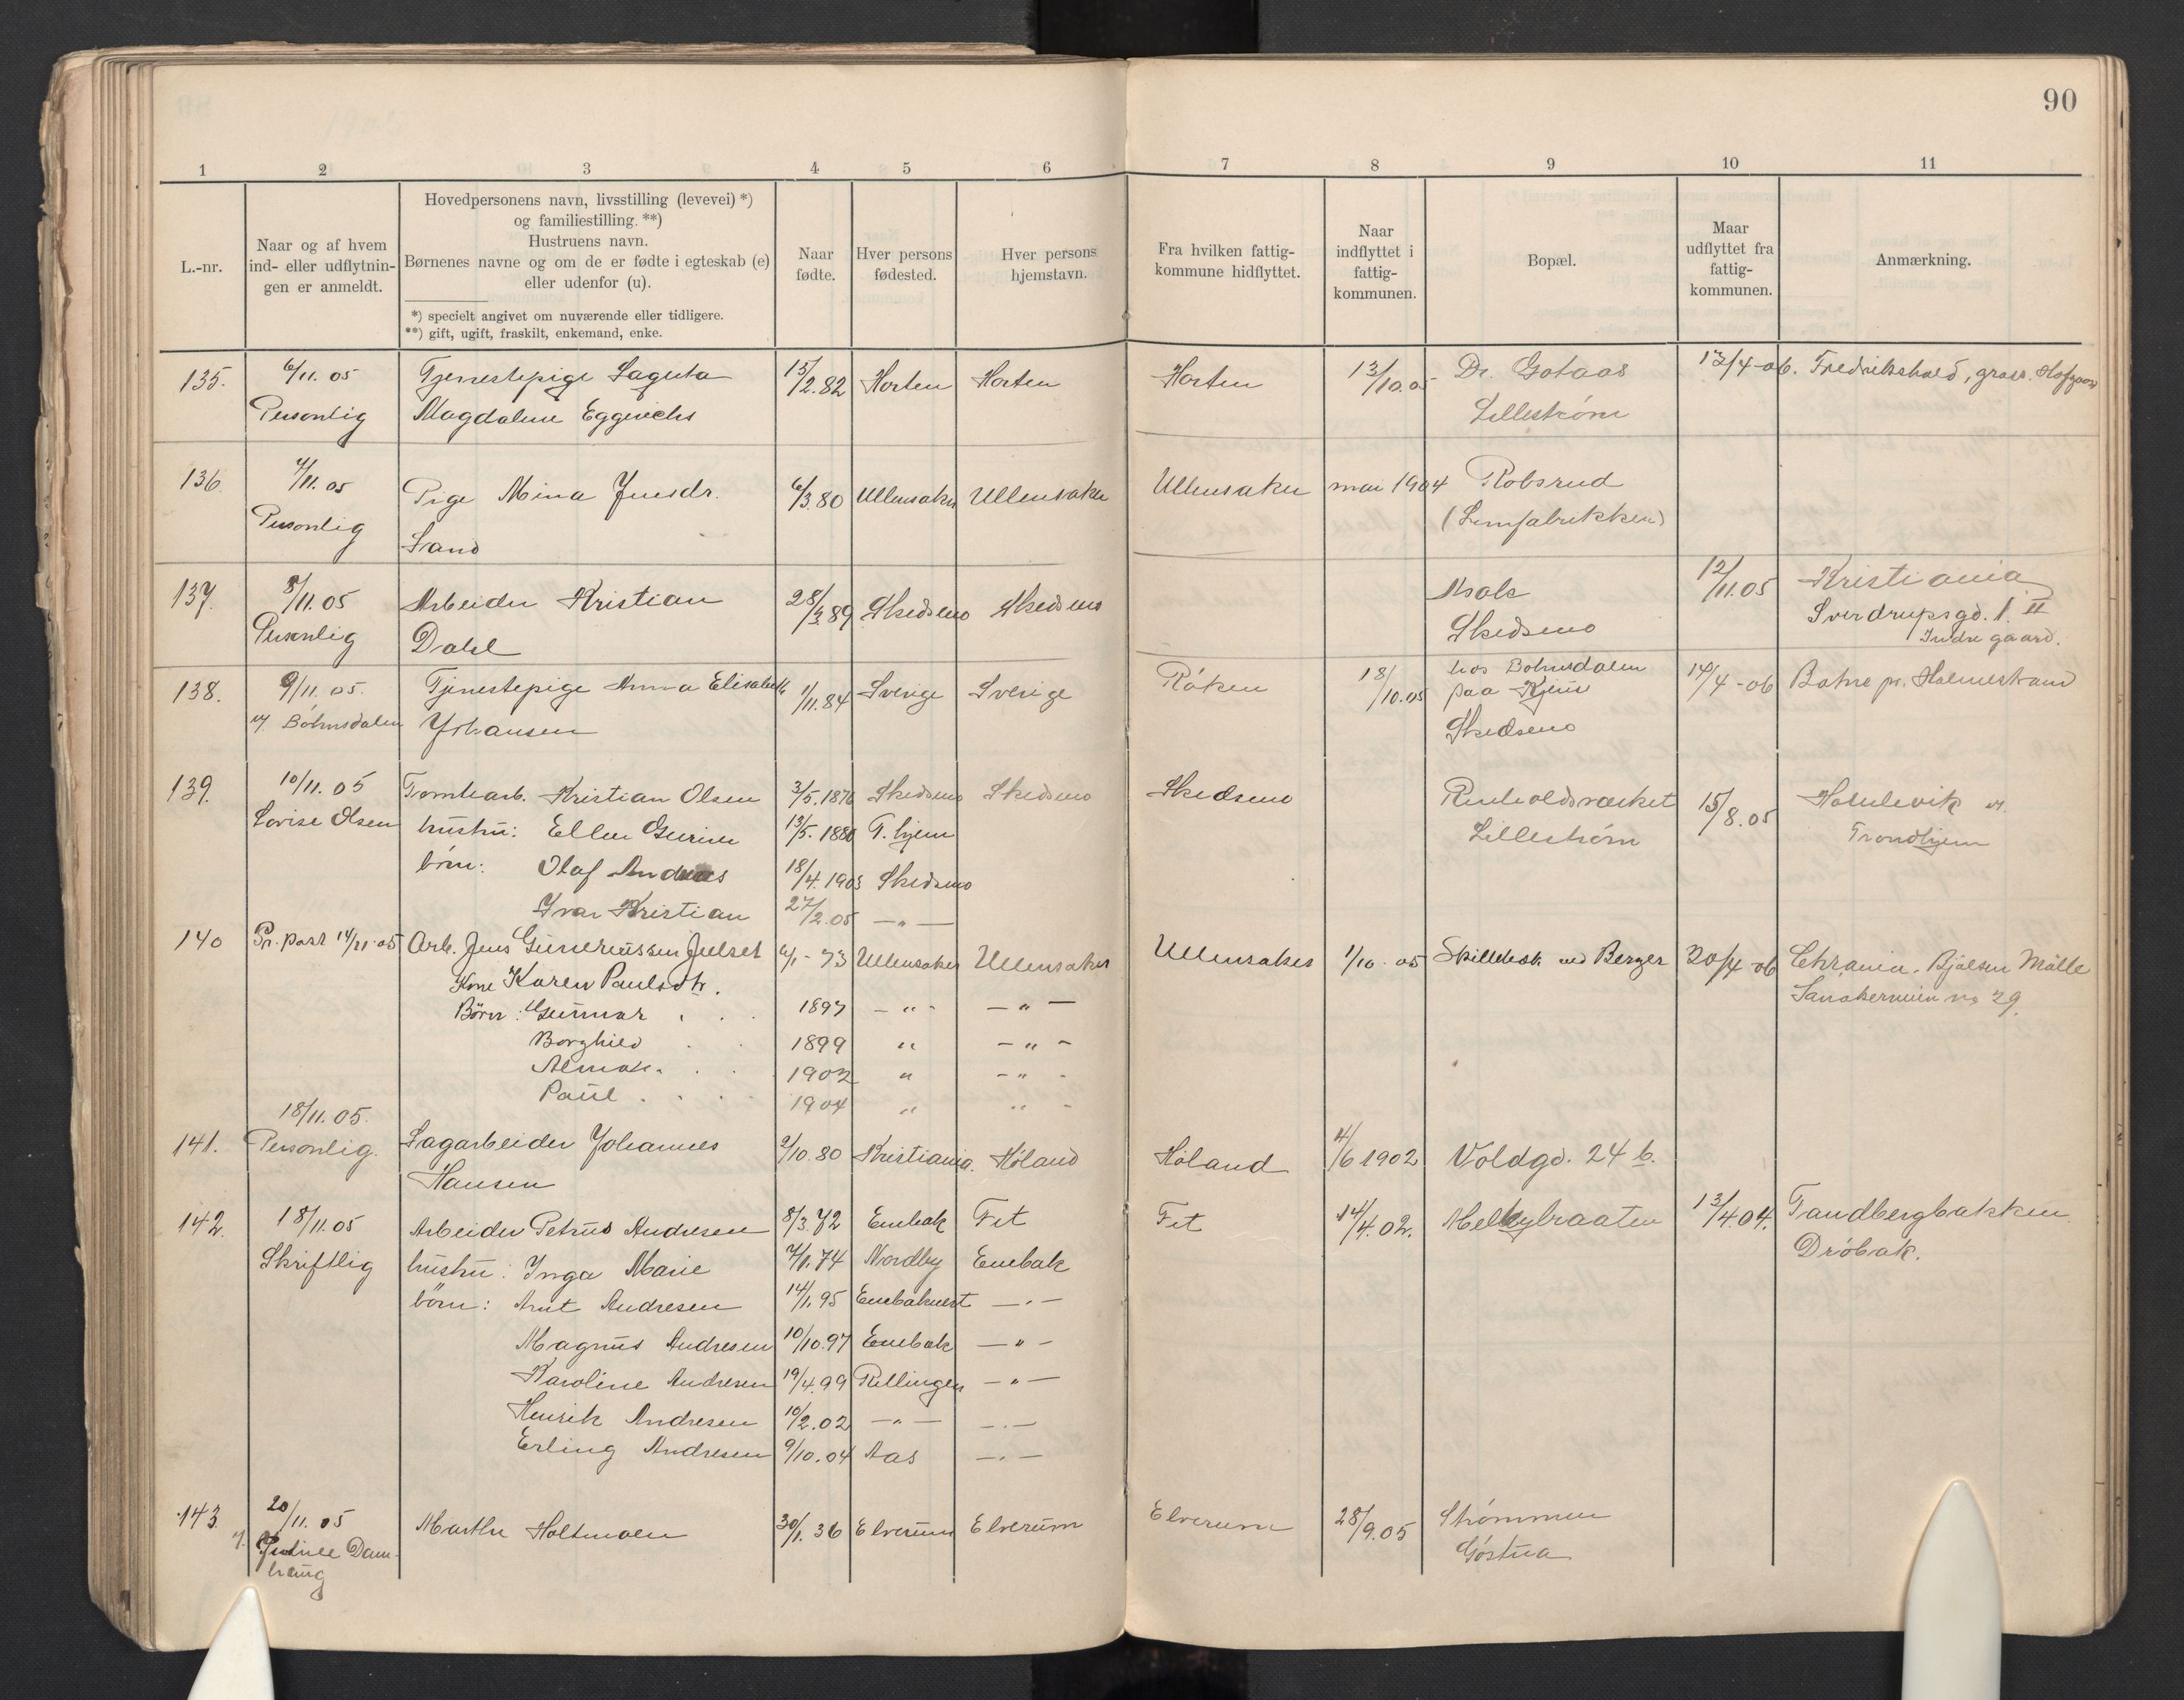 90
1 2 3 4 5 6 7 8 9 10 11
L.-nr.
Naar og af hvem
ind- eller udflytnin-
gen er anmeldt.
Hovedpersonens navn, livsstilling (levevei) *)
og familiestilling. **)
Hustruens navn.
Børnenes navne og om de er fødte i egteskab (e)
eller udenfor (u).
*) specielt angivet om nuværende eller tidligere.
**) gift, ugift, fraskilt, enkemand, enke.
Naar
fødte.
Hver persons
fødested.
Hver persons
hjemstavn.
Fra hvilken fattig-
kommune hidflyttet.
Naar
indflyttet i
fattig-
kommunen.
Bopæl.
Maar
udflyttet fra
fattig-
kommunen.
Anmærkning.
135. 6/11. 05 Tjenestepige Laguta 15/2.82 Horten Horten Horten 13/10.05 Dr. Gotaas 13/4-06. Fredrikshald,
Personlig Magdalene Lillestrøm
136 7/11. 05 Pige Mina Jensdr. 6/3.80 Ullensaker Ullensaker Ullensaker mai 1904 Robsrud
Personlig Sand (Limfabrikken)
137. 8/11. 05 Arbeider Kristian 28/3.89 Skedsmo Skedsmo 12/11.05 Kristiania
Personlig Dahl Skedsmo Sverdrupsgd. 1. II
Indre gaard.
138. 9/11. 05. Tjenestepige Anna Elisabeth 1/11.84 Sverige Sverige Røken 18/10.05 hos Bøhmsdalen 14/4-06 Botne pr. Holmestrand
v. Bøhmsdalen Johansen paa Kjeus
Skedsmo
139. 10/11. 05 Tomtearb. Kristian Olsen 3/5.1876 Skedsmo Skedsmo Skedsmo 15/8.05
Lovise Olsen hustru: Ellen 13/5.1880 T.hjem Lillestrøm Trondhjem
børn: Olaf Andreas 18/4.1903 Skedsmo
Ivar Kristian 27/2.05 — " —
140 Pr. post 14/11-05 Arb. Jens Guneriussen Julset 6/1-73 Ullensaker Ullensaker Ullensaker 1/10-05 Skillebek ved Berger 20/4-06 Chrania. Bjølsen Mølle
Kone Karen Paulsdtr. Sanakerveien no 29.
Börn: Gunnar 1897 — " - — " —
Borghild 1899 " — " -
1902 " — " -
Paul 1904 " " -
18/11. 05.
141. Personlig. Sagarbeider Johannes 9/10.80 Kristiania. Høland Høland 4/6 1902 Voldgd. 24 b.
Hansen
142. 18/11.05 Arbeider Petrus Andresen 8/3.72 Enebak Fet Fet 14/4.02. Melbybraaten 13/4.04. Tandbergbakken
Skriftlig hustru: Inga Marie 7/1.74 Nordby Enebak Drøbak.
børn: Arnt Andresen 14/1.95 — " —
Magnus Andresen 10/10.97 Enebak — " —
Karoline Andresen 19/4.99 Rellingen — " —
Henrik Andresen 10/2.02 — " — — " —
Erling Andresen 9/10.04 Aas — " —
143. 20/11. 05 Marthe Holtmoen 30/1.36 Elverum Elverum Elverum 28/9.05 Strømmen
v. Dam- Gøstua
haug